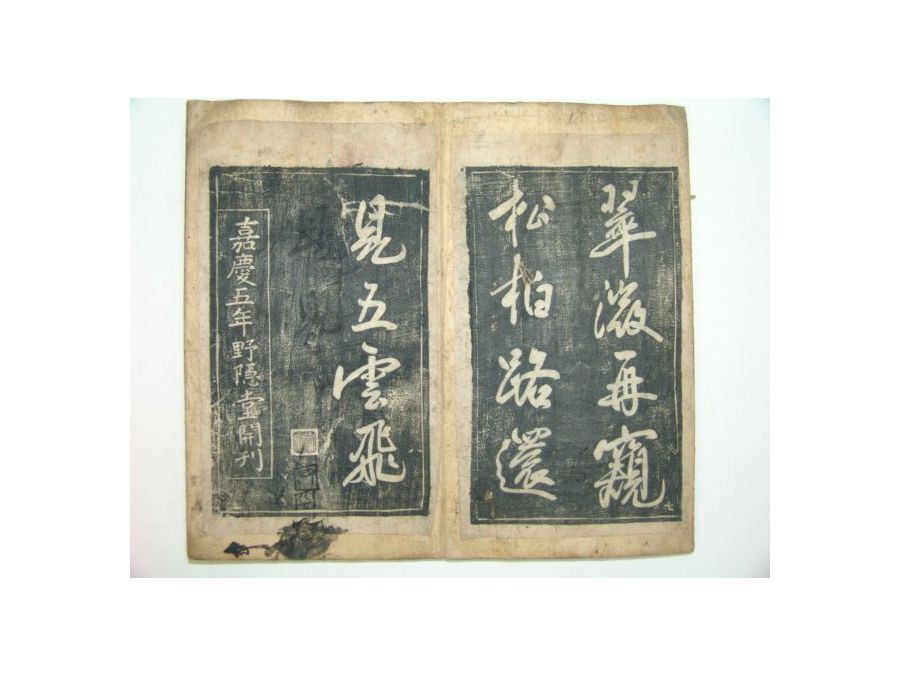 翠微再窺
七
松柏路還
見五雲飛
嘉慶五年野隠堂開刊